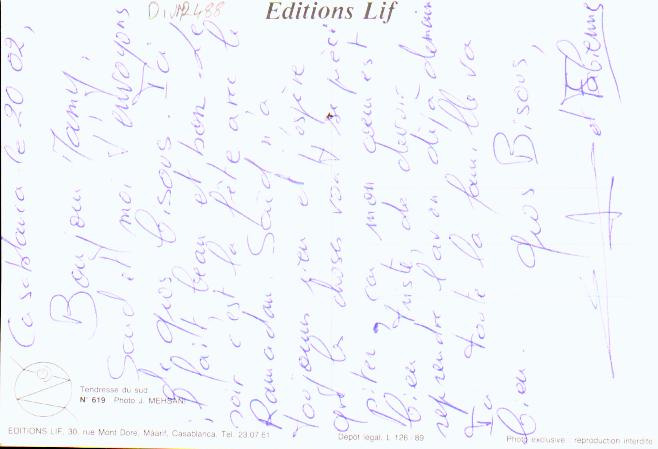 DIVM2488
Editions Lif
Casablanca le 20 02,
Bonjour Jamy,
Saïd et moi t'envoyons
de gros bisous. Ici
il fait beau et bon. Le
soir c'est la fête avec le
Ramadan. Saïd n'a
toujours rien et j'espère
que les choses vont se préci
piter car mon coeur est
bien triste de devoir
reprendre l'avion déjà demain
Ici toute la famille va
bien.
Gros Bisous,
et Fabienne
Tendresse du sud
N° 619 Photo J. MEHSANI
EDITIONS LIF, 30, rue Mont Dore, Mâarif, Casablanca. Tel. 23.07.61
Dépôt légal. L 126 - 89
Photo exclusive : reproduction interdite